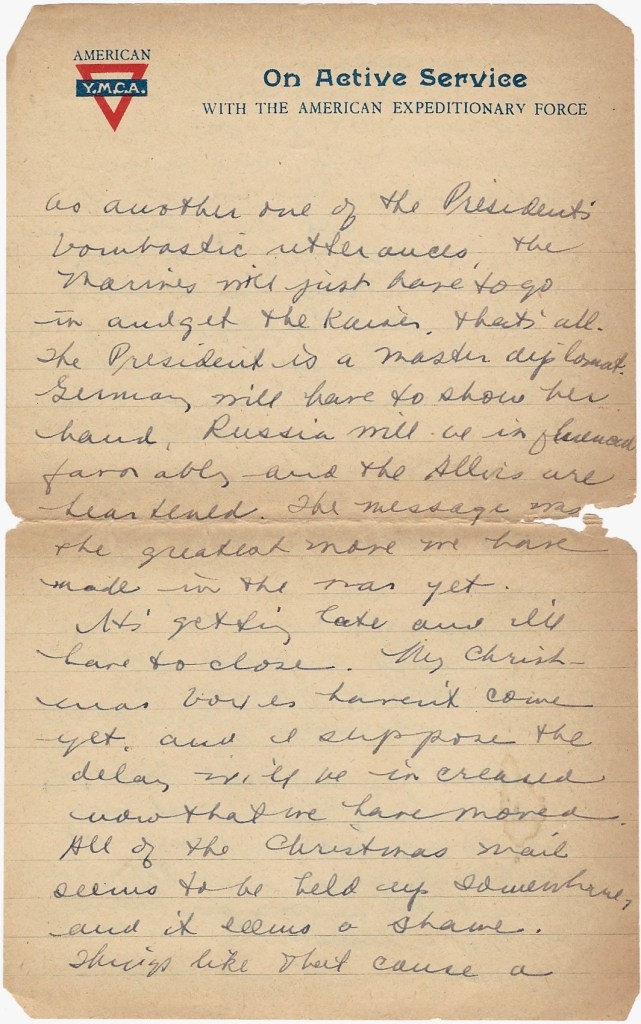 AMERICAN
Y.M.C.A.
On Active Service
WITH THE AMERICAN EXPEDITIONARY FORCE
as another one of the President's
bombastic utterances, the
Marines will just have to go
in and get the Kaiser, that's all.
The President is a master diplomat.
Germany will have to show her
hand, Russia will be influenced
favorably and the Allies are
heartened. The message was
the greatest move we have
made in the war yet.
It's getting late and I'll
have to close. My Christ-
mas boxes haven't come
yet, and I suppose the
delay will be increased
now that we have moved.
All of the Christmas mail
seems to be held up somewhere,
and it seems a shame.
Things like that cause a